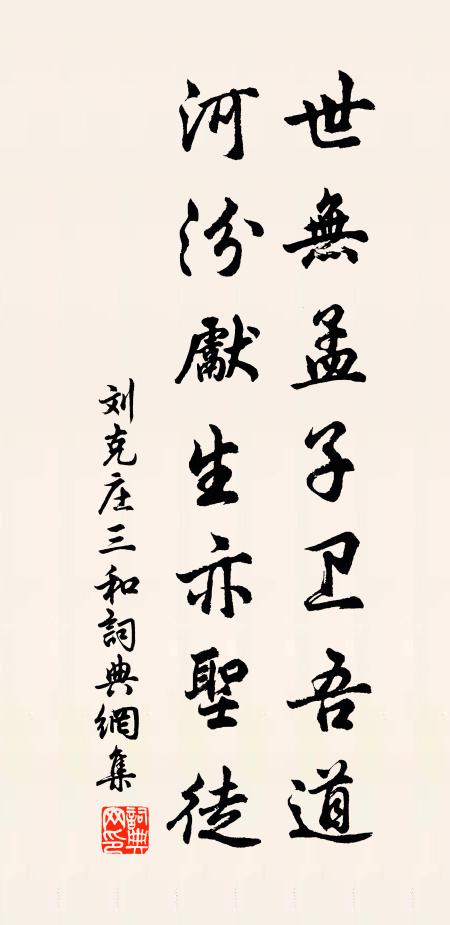 世無孟子卫吾道
河汾獻生亦聖徒
刘克庄三和詞典網集
詞典网印